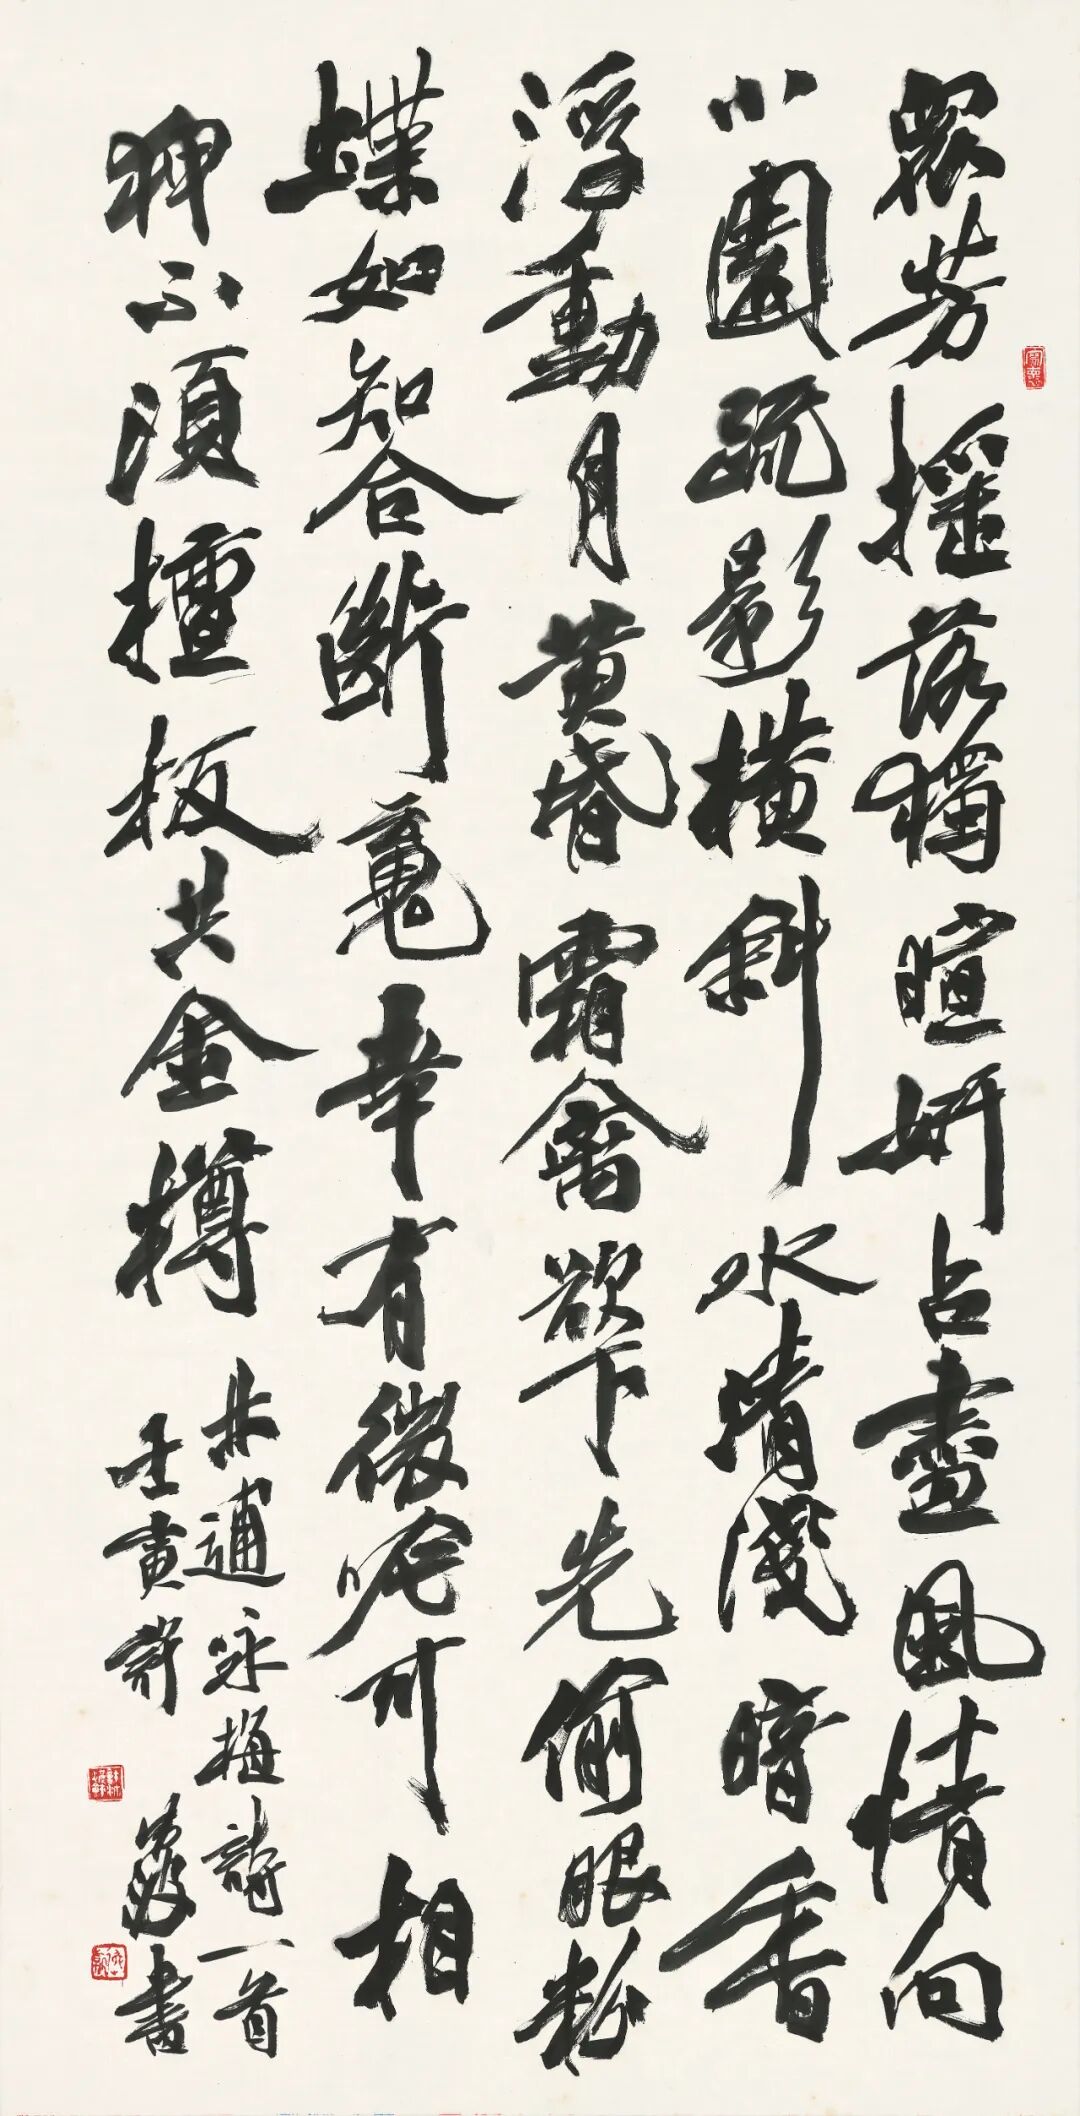 眾芳搖落獨暄妍占盡風情向
小園疏影橫斜水清淺暗香
浮動月黃昏霜禽欲下先偷眼粉
蝶如知合斷魂幸有微吟可相
狎不須檀板共金樽
林逋咏梅詩一首
壬寅書